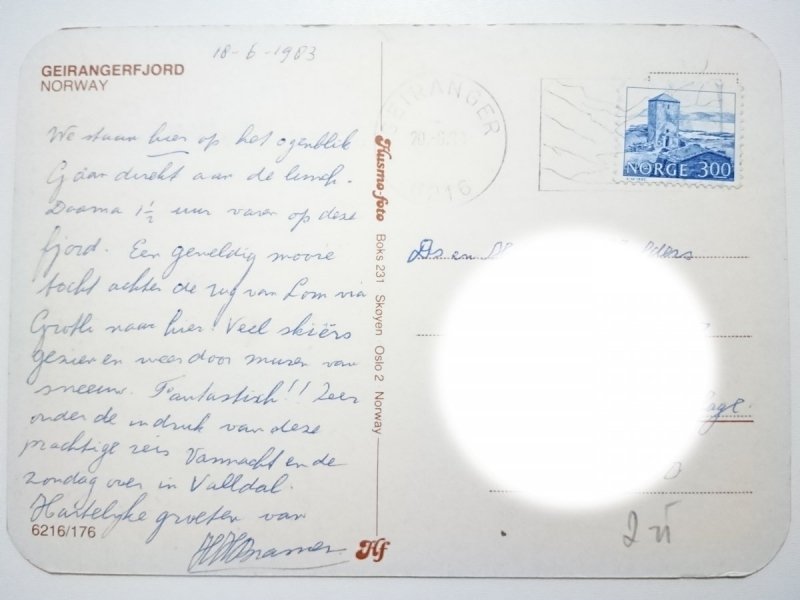 18-6-1983
GEIRANGERFJORD
NORWAY
We staan hier op het ogenblik
Gaan direkt aan de lunch.
Daarna 1½ uur varen op deze
fjord. Een geweldig mooie
tocht achter de rug van Lom via
Grotli naar hier! Veel skiërs
gezien en weer door muren van
sneeuw. Fantastisch!! Zeer
onder de indruk van deze
prachtige reis Vannacht en de
zondag over in Valldal.
Hartelijke groeten van
6216/176
Husmo-foto Boks 231 Skøyen Oslo 2 Norway
Hf
GEIRANGER
6216
NORGE 300
Ds en